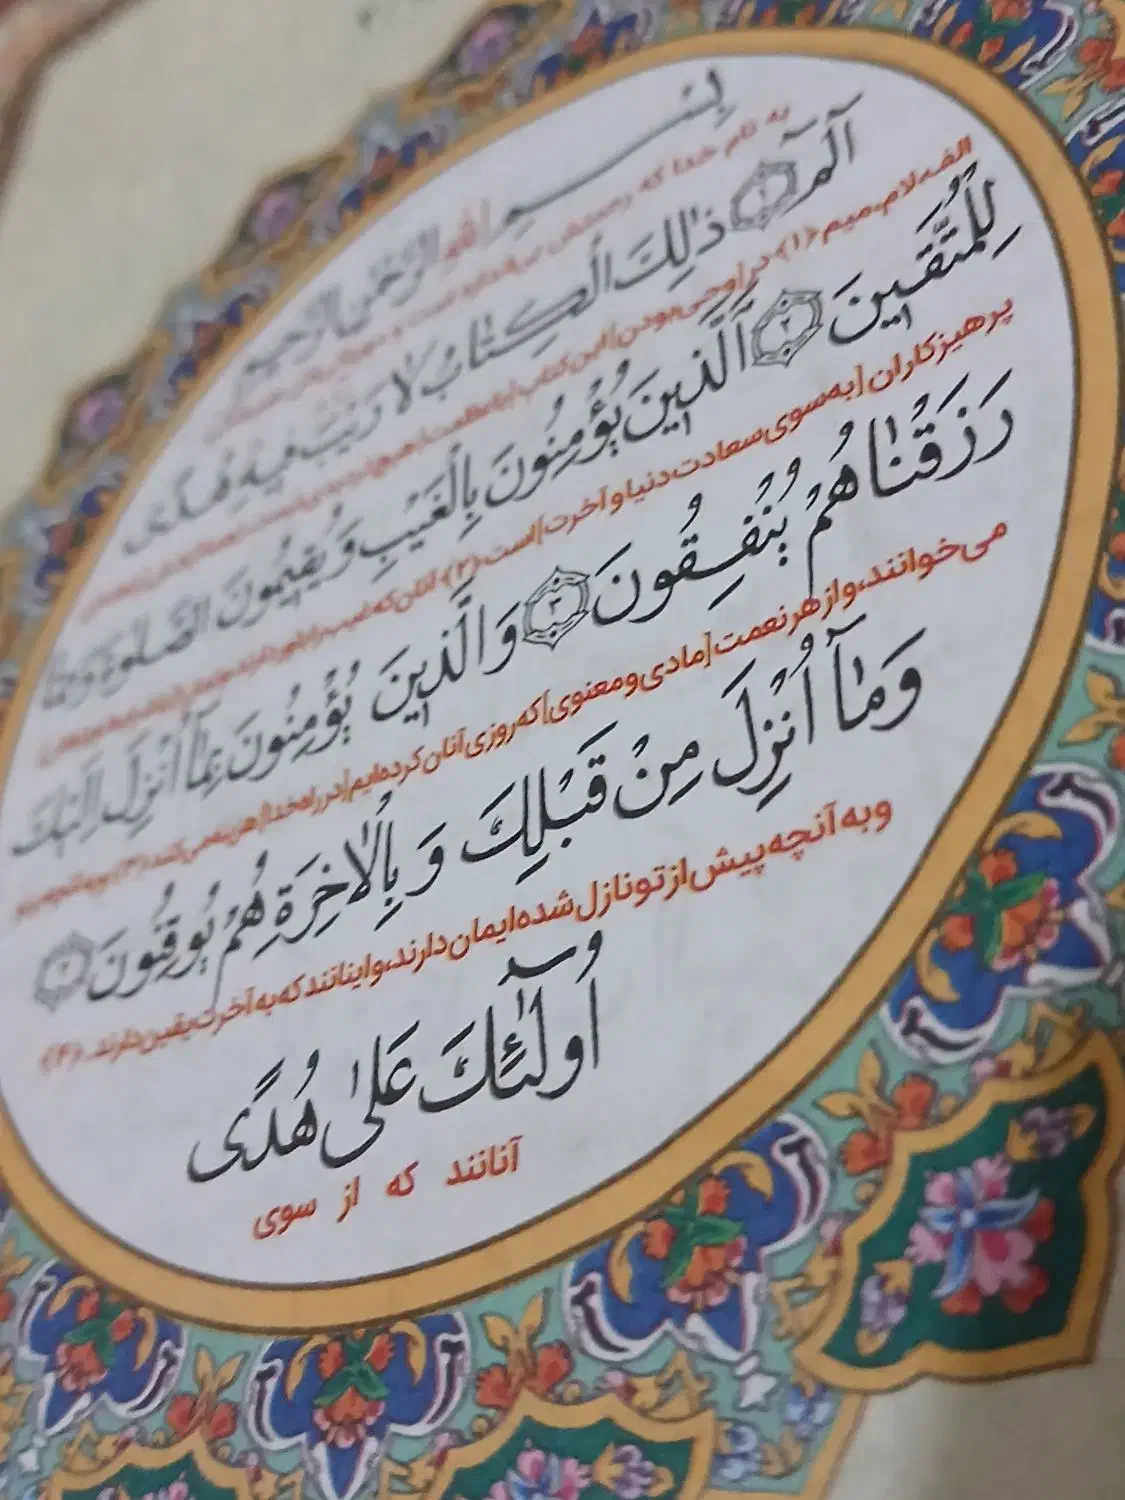 بِسْمِ اللهِ الرَّحْمٰنِ الرَّحِيمِ
به نام خدا که رحمتش بی‌اندازه است و
الٓمٓ ﴿١﴾ ذٰلِكَ الْكِتٰابُ لٰا رَيْبَ فِيهِ هُدًى
الف، لام، میم (۱) در [وحی بودن] این کتاب [باعظمت] هیچ
لِلْمُتَّقِينَ ﴿٢﴾ اَلَّذِينَ يُؤْمِنُونَ بِالْغَيْبِ وَ يُقِيمُونَ الصَّلٰوةَ وَ مِمّٰا
پرهیزکاران [به سوی سعادت دنیا و آخرت] است. (۲) آنان که غیب را باور دارند و نماز را
رَزَقْنٰاهُمْ يُنْفِقُونَ ﴿٣﴾ وَ الَّذِينَ يُؤْمِنُونَ بِمٰآ اُنْزِلَ اِلَيْكَ
می‌خوانند، و از هر نعمت [مادی و معنوی] که روزی آنان کرده‌ایم [در راه خدا] هزینه می‌کنند. (۳)
وَ مٰآ اُنْزِلَ مِنْ قَبْلِكَ وَ بِالْاٰخِرَةِ هُمْ يُوقِنُونَ ﴿٤﴾
و به آنچه پیش از تو نازل شده ایمان دارند، و اینانند که به آخرت یقین دارند. (۴)
اُولٰٓئِكَ عَلىٰ هُدًى
آنانند که از سوی